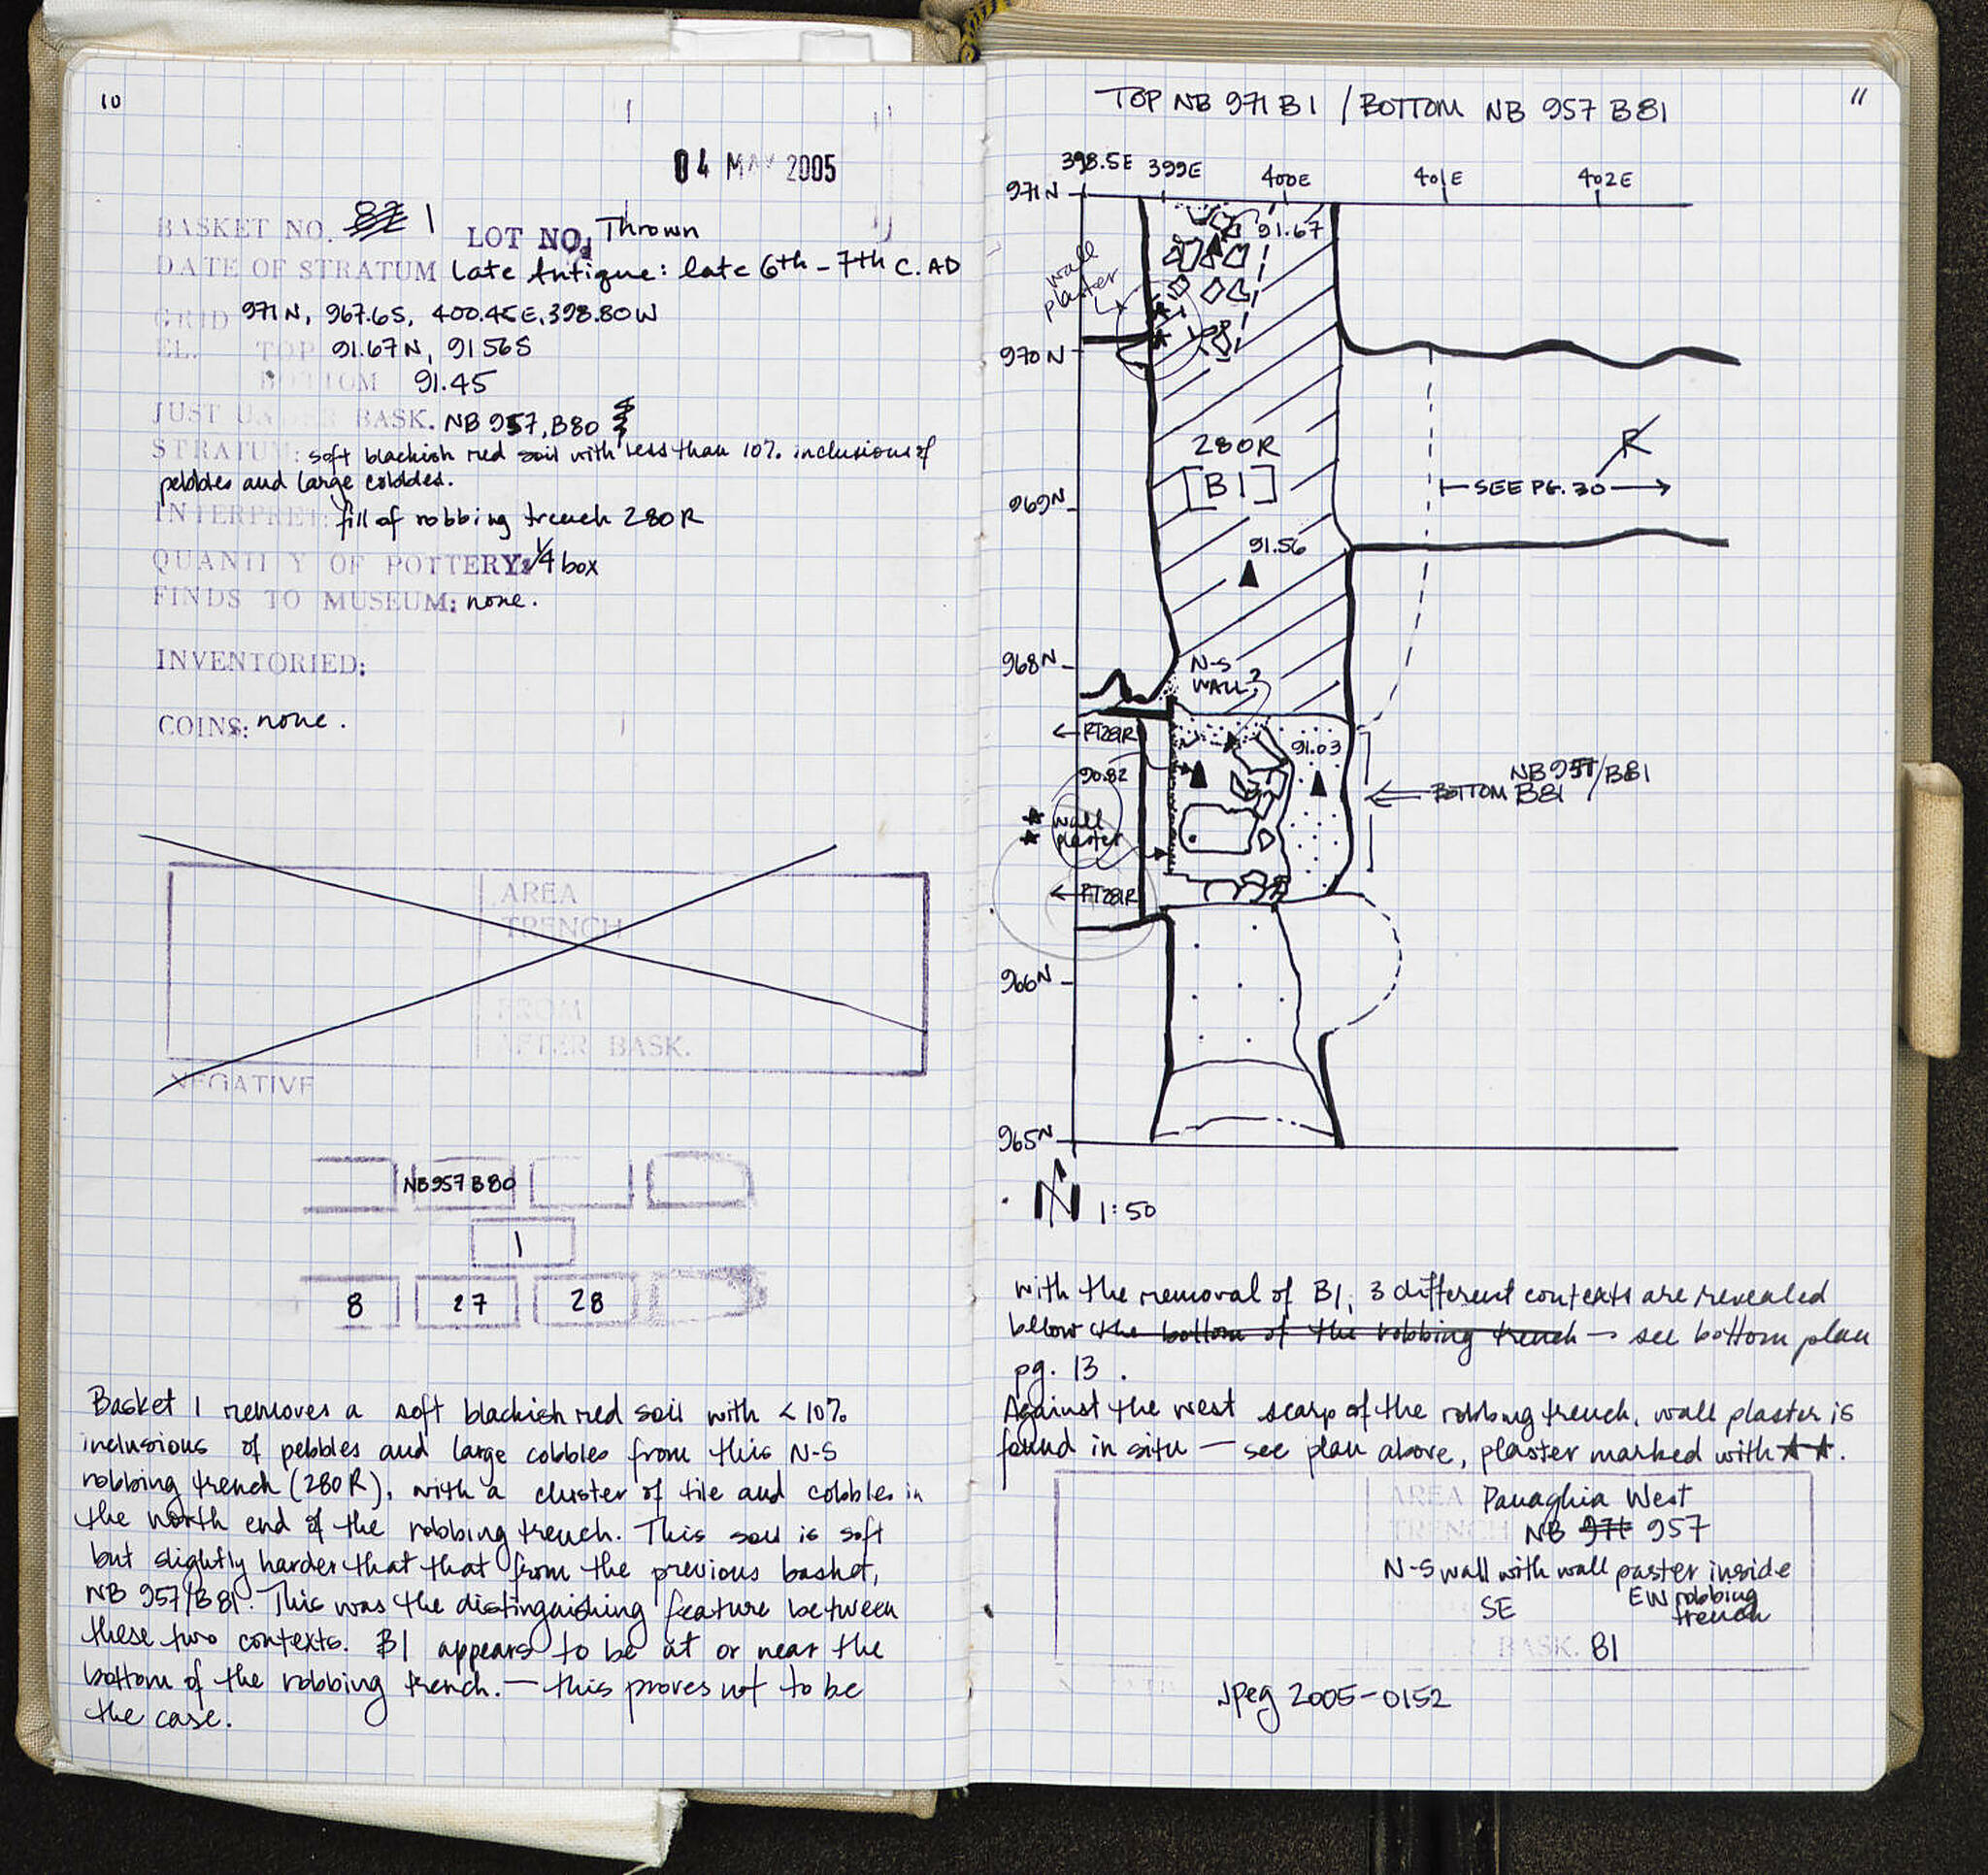 10
04 MAY 2005
BASKET NO. 82 1 LOT NO. Thrown
DATE OF STRATUM Late Antique: late 6th - 7th C. AD
GRID 971N, 967.6S, 400.45E, 398.80W
EL. TOP 91.67N, 91.56S
BOTTOM 91.45
JUST UNDER BASK. NB 957, B80
STRATUM: soft blackish red soil with less than 10% inclusions of
pebbles and large cobbles.
INTERPRET: fill of robbing trench 280R
QUANTITY OF POTTERY: 1/4 box
FINDS TO MUSEUM: none.
INVENTORIED:
COINS: none.
AREA
TRENCH
FROM
AFTER BASK.
NEGATIVE
NB957 B80
1
8 27 28
Basket 1 removes a soft blackish red soil with < 10%
inclusions of pebbles and large cobbles from this N-S
robbing trench (280R), with a cluster of tile and cobbles in
the north end of the robbing trench. This soil is soft
but slightly harder that that from the previous basket,
NB 957/B81. This was the distinguishing feature between
these two contexts. B1 appears to be at or near the
bottom of the robbing trench. — this proves not to be
the case.
TOP NB 971 B1 / BOTTOM NB 957 B81
11
398.5E 399E 400E 401E 402E
971N
91.67
wall
plaster
970N
280R
[B1]
R
SEE PG. 30
969N
91.56
968N
N-S
WALL?
RT281R
91.03
90.82
NB 957/B81
BOTTOM B81
★ wall
★ plaster
RT281R
966N
965N
N 1:50
with the removal of B1, 3 different contexts are revealed
bellow the bottom of the robbing trench → see bottom plan
pg. 13.
Against the west scarp of the robbing trench, wall plaster is
found in situ — see plan above, plaster marked with ★★.
AREA Panaghia West
TRENCH NB 971 957
N-S wall with wall paster inside
SE EW robbing
trench
BASK. 81
Jpeg 2005-0152